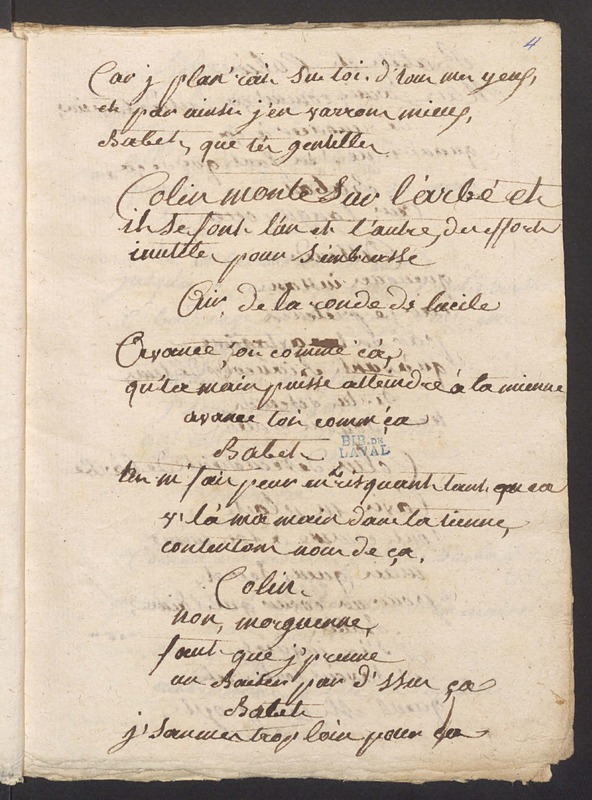 4
Car j plan'rai sur toi d'tous mes yeux,
et par ainsi j'en varrons mieux,
Babet, que t'es gentille.
Colin monte sur l'arbe et
ils se font l'un et l'autre, des efforts
inutile pour s'embrasse
Air, de la ronde de lucile
Avance toi comme ça,
qu'ta main puisse atteindre à la mienne
avance toi comm' ça
Babet
tu m'fais peur en risquant tant que ça
v'là ma main dans la tienne,
contentons nous de ça.
Colin
non, morguenne,
faut que j'prenne
un Baiser par d'ssur ça
Babet
j'sommes trop loin pour ça
BIB. DE
LAVAL